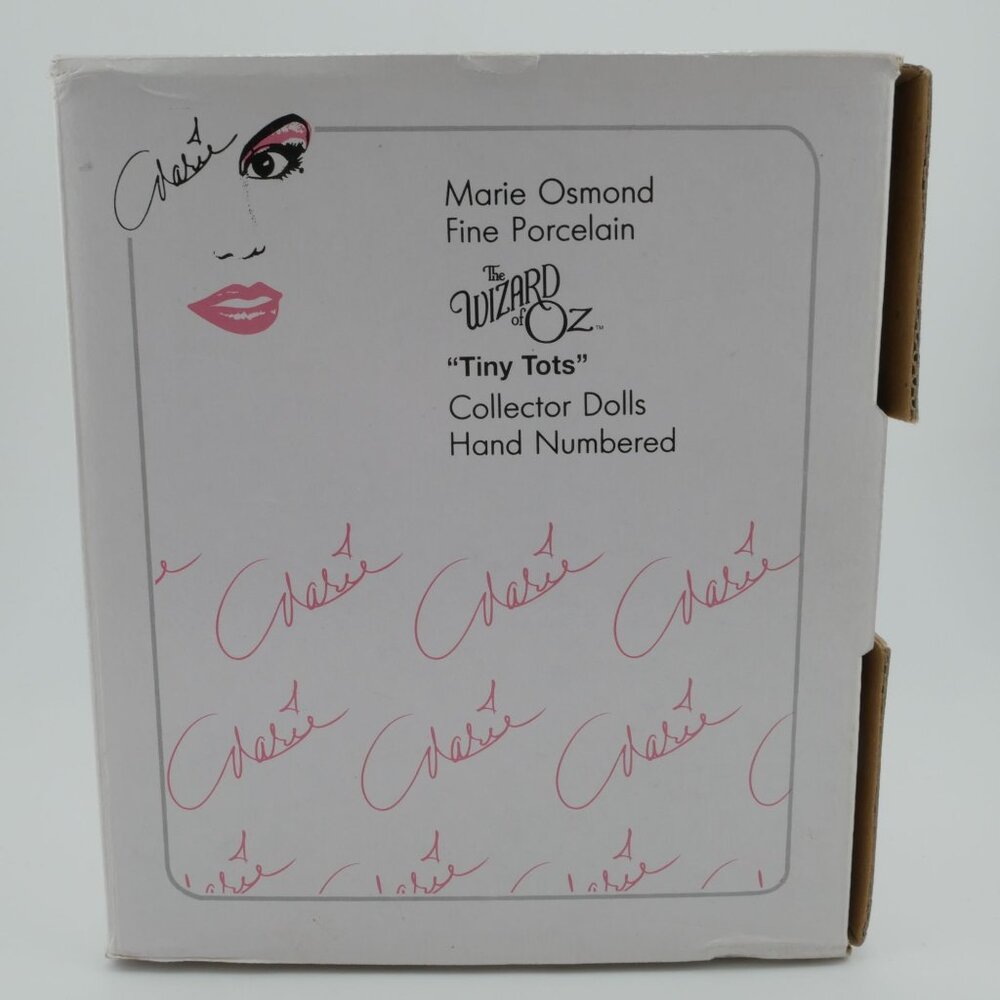 Marie
Marie Osmond
Fine Porcelain
The
WIZARD
of OZ™
"Tiny Tots"
Collector Dolls
Hand Numbered
Marie Marie Marie
Marie Marie Marie
Marie Marie Marie